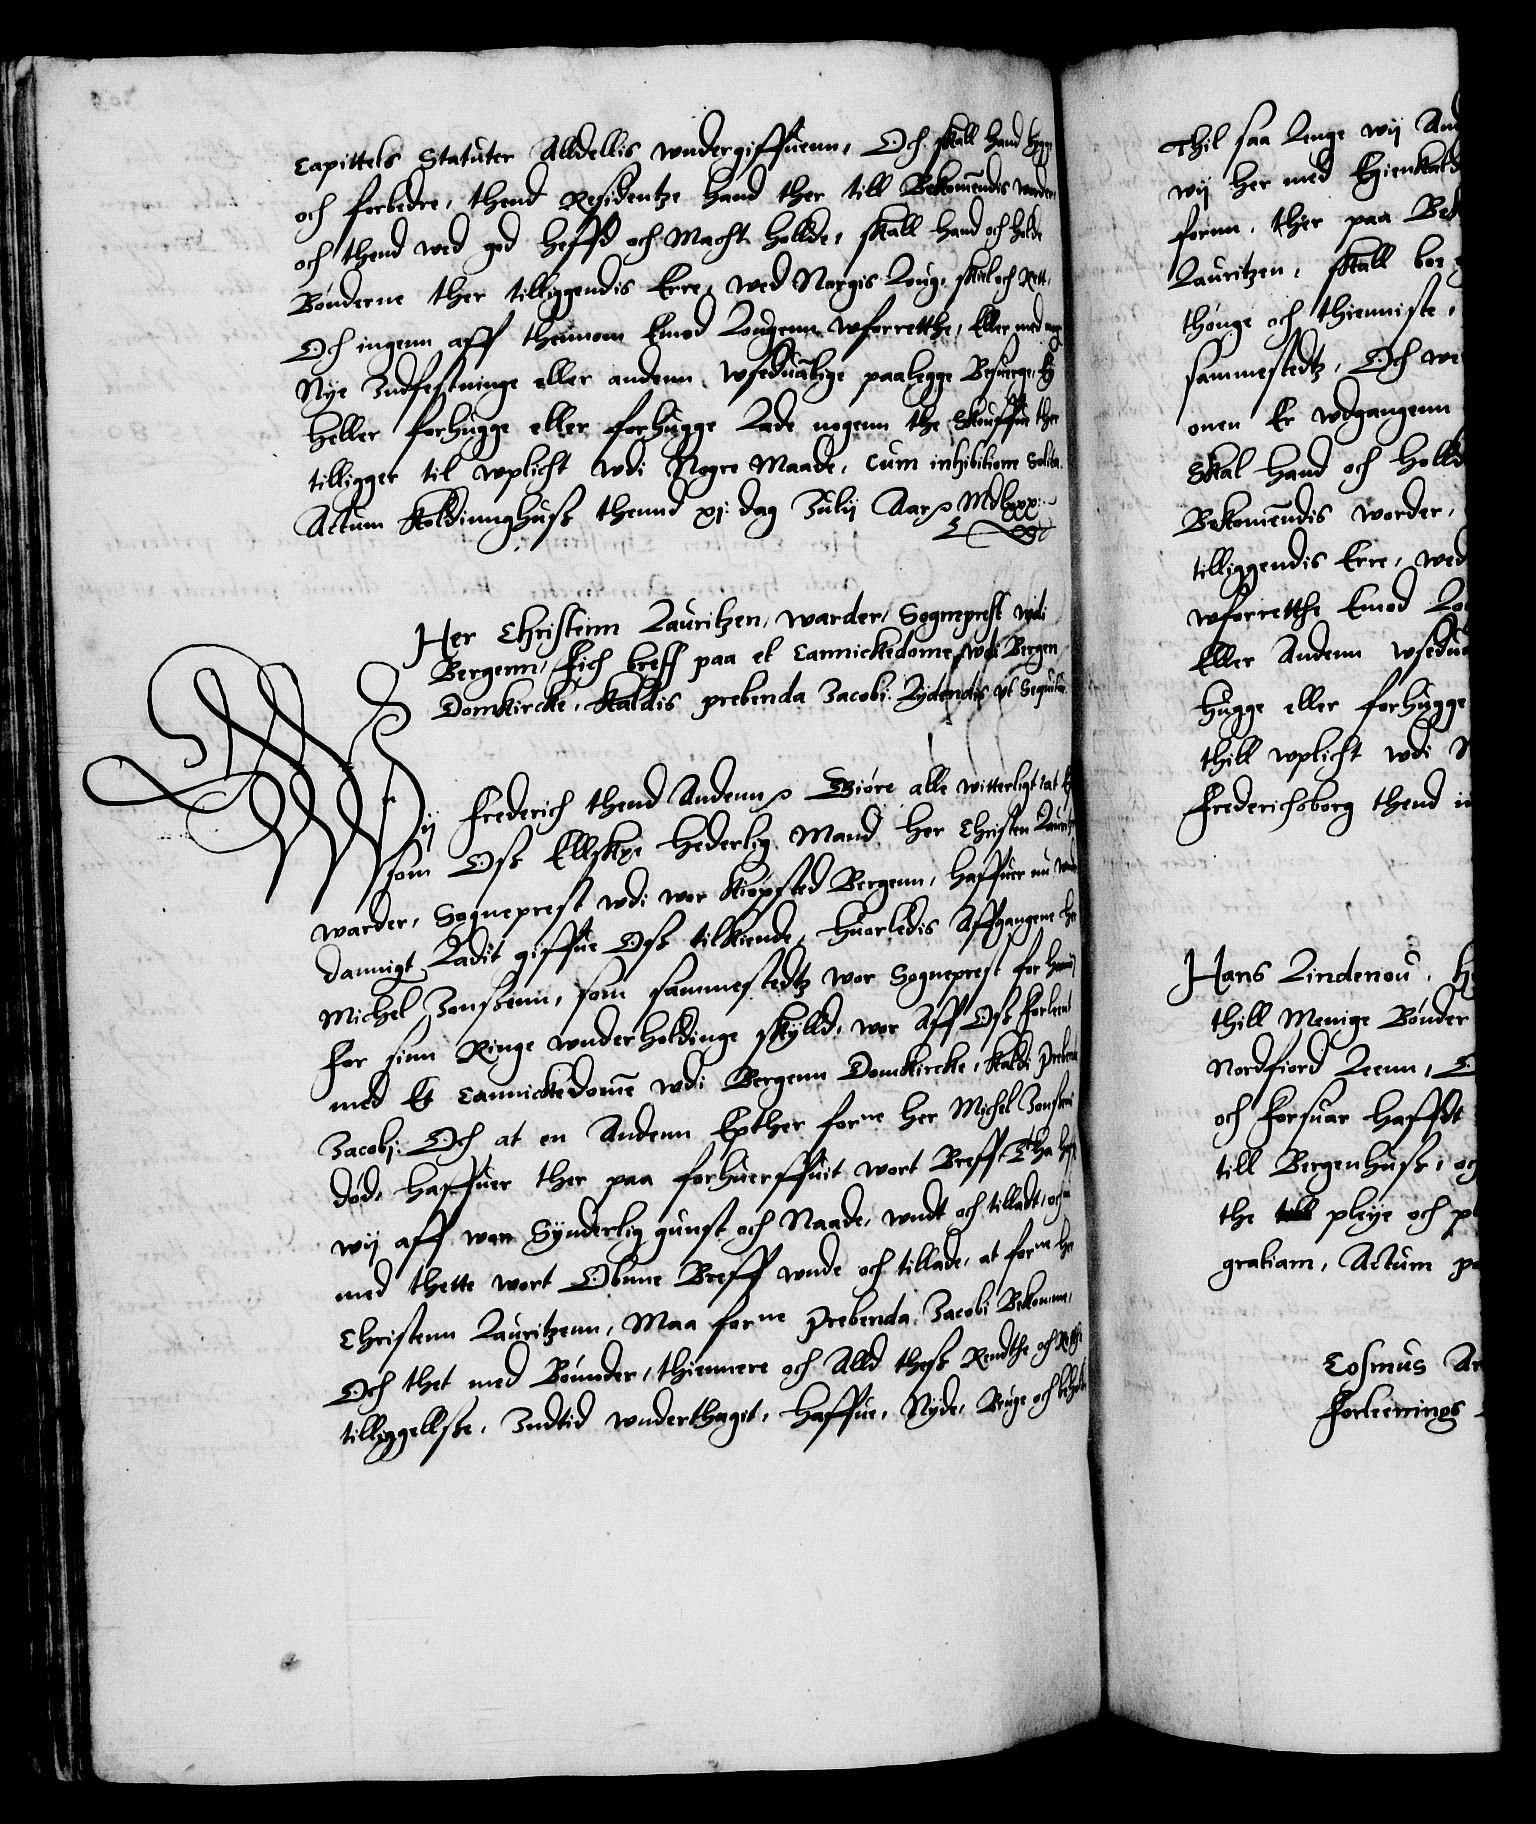 Capittels Statuter Alldellis wndergiffuenn, Och skall hand bygge
och forbedre, thend Residentze hand ther till Bekomendis worder,
och thend wed god heffd och Macht hollde, skall hand och holde
Bønderne ther tilliggendis Erre, wed Norgis Loug, skiel och Rett,
Och ingenn aff thennom Emod Lougenn wforretthe, Eller med nog
Nye Indfestninge eller andenn wseduanlige paalegge Besuerge, Ey
heller forhugge eller forhugge Lade nogenn the Skouffue ther
tilligger til wplicht wdi Nogre Maade, Cum inhibitione Solita.
Actum Koldinnghuss thennd xj dag Julij Aar Mdlxxx:

Her Christenn Lauritzen, warder, Sogneprest wdi
Bergenn, Fich breff paa et Cannickedome, wdi Bergen
Domkircke, Kaldis prebenda Jacobi Lydendis vt Sequitur.

Wij Frederich thend Andenn Giøre alle witterligt, at
som Oss Ellskee hederlig Mand her Christen Lauritz
warder, Sogneprest wdi wor Kiøpsted Bergenn, haffuer nu wnder
dannigt Ladit giffue Oss tilkiende, huorledis Affgangene her
Michel Jonssenn, som sammestedtz wor Sogneprest for hannom
for sinn Ringe wnderholdinge skylld, wor Aff Oss forlent
med Et Cannickedome wdi Bergenn Domkircke, kaldis Prebenda
Jacobj. Och at en Andenn Epther forne her Michel Jonssens
død, haffuer ther paa forhuerffuit wort Breff Tha haffue
wij aff wor Synderlig gunst och Naade, wndt och tilladt, och nu
med thette wort Obnne Breff wnde och tillade, at forne her
Christenn Lauritzenn, Maa forne Prebenda Jacobi Bekomme,
Och thet med Bønnder, thiennere och Alld thess Rendthe och Rette
tilliggellsse, Indtid wnderthagit, haffue, Nyde, Bruge och beholde

Thil saa Lenge wij And
wij her med Gienkald
fornn. ther paa Bek
Lauritzen, skall boe
thønge och thienniste,
sammestedtz, Och we
onen Er wdgangenn
Skal hand och holld
Bekomendis worder,
tilliggendis Erre, wed
wforretthe Emod Lou
Eller Andenn wsedua
hugge eller forhugge
thill wplicht wdi N
Frederichsborg thend

Hans Lindenou,
thill Menige Bønder
Nordfiord Leenn,
och forsuar haffdt
till Bergenhuss, oc
the till pleye och pl
gratiam, Actum

Cosmus Ar
Forleenings